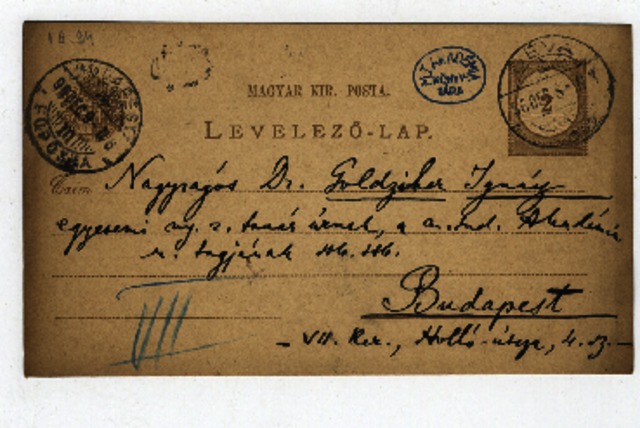 MAGYAR KIR. POSTA.
LEVELEZŐ-LAP.
Czim Nagyságos Dr. Goldziher Ignácz
egyetemi ny. r. tanár úrnak, a m. tud. Akadémia
r. tagjának stb. stb.
Budapest
VII
– VII. Ker., Holló-utcza, 4. sz. –